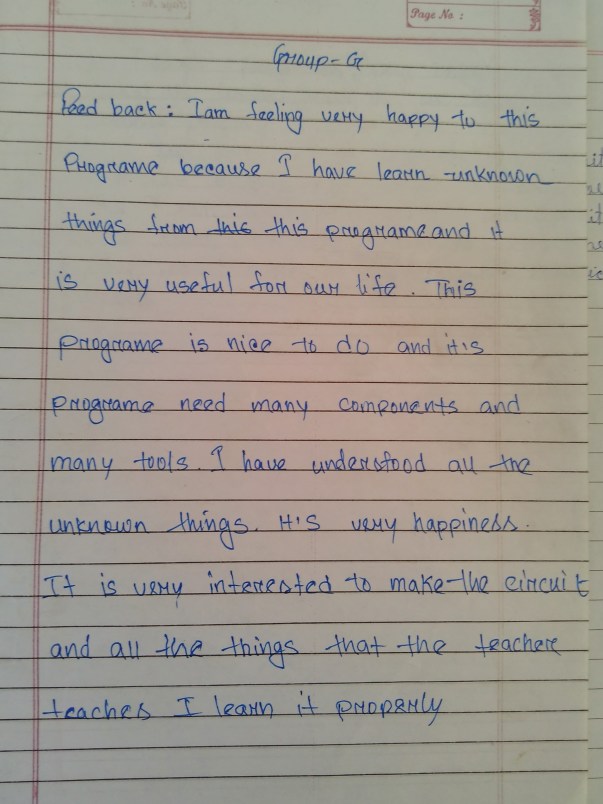 Page No :
Group - G
Feed back : I am feeling very happy to this
Programe because I have learn unknown
things from this this programe and it
is very useful for our life. This
programe is nice to do and it's
programe need many components and
many tools. I have understood all the
unknown things. It's very happiness.
It is very interested to make the circuit
and all the things that the teacher
teaches I learn it properly